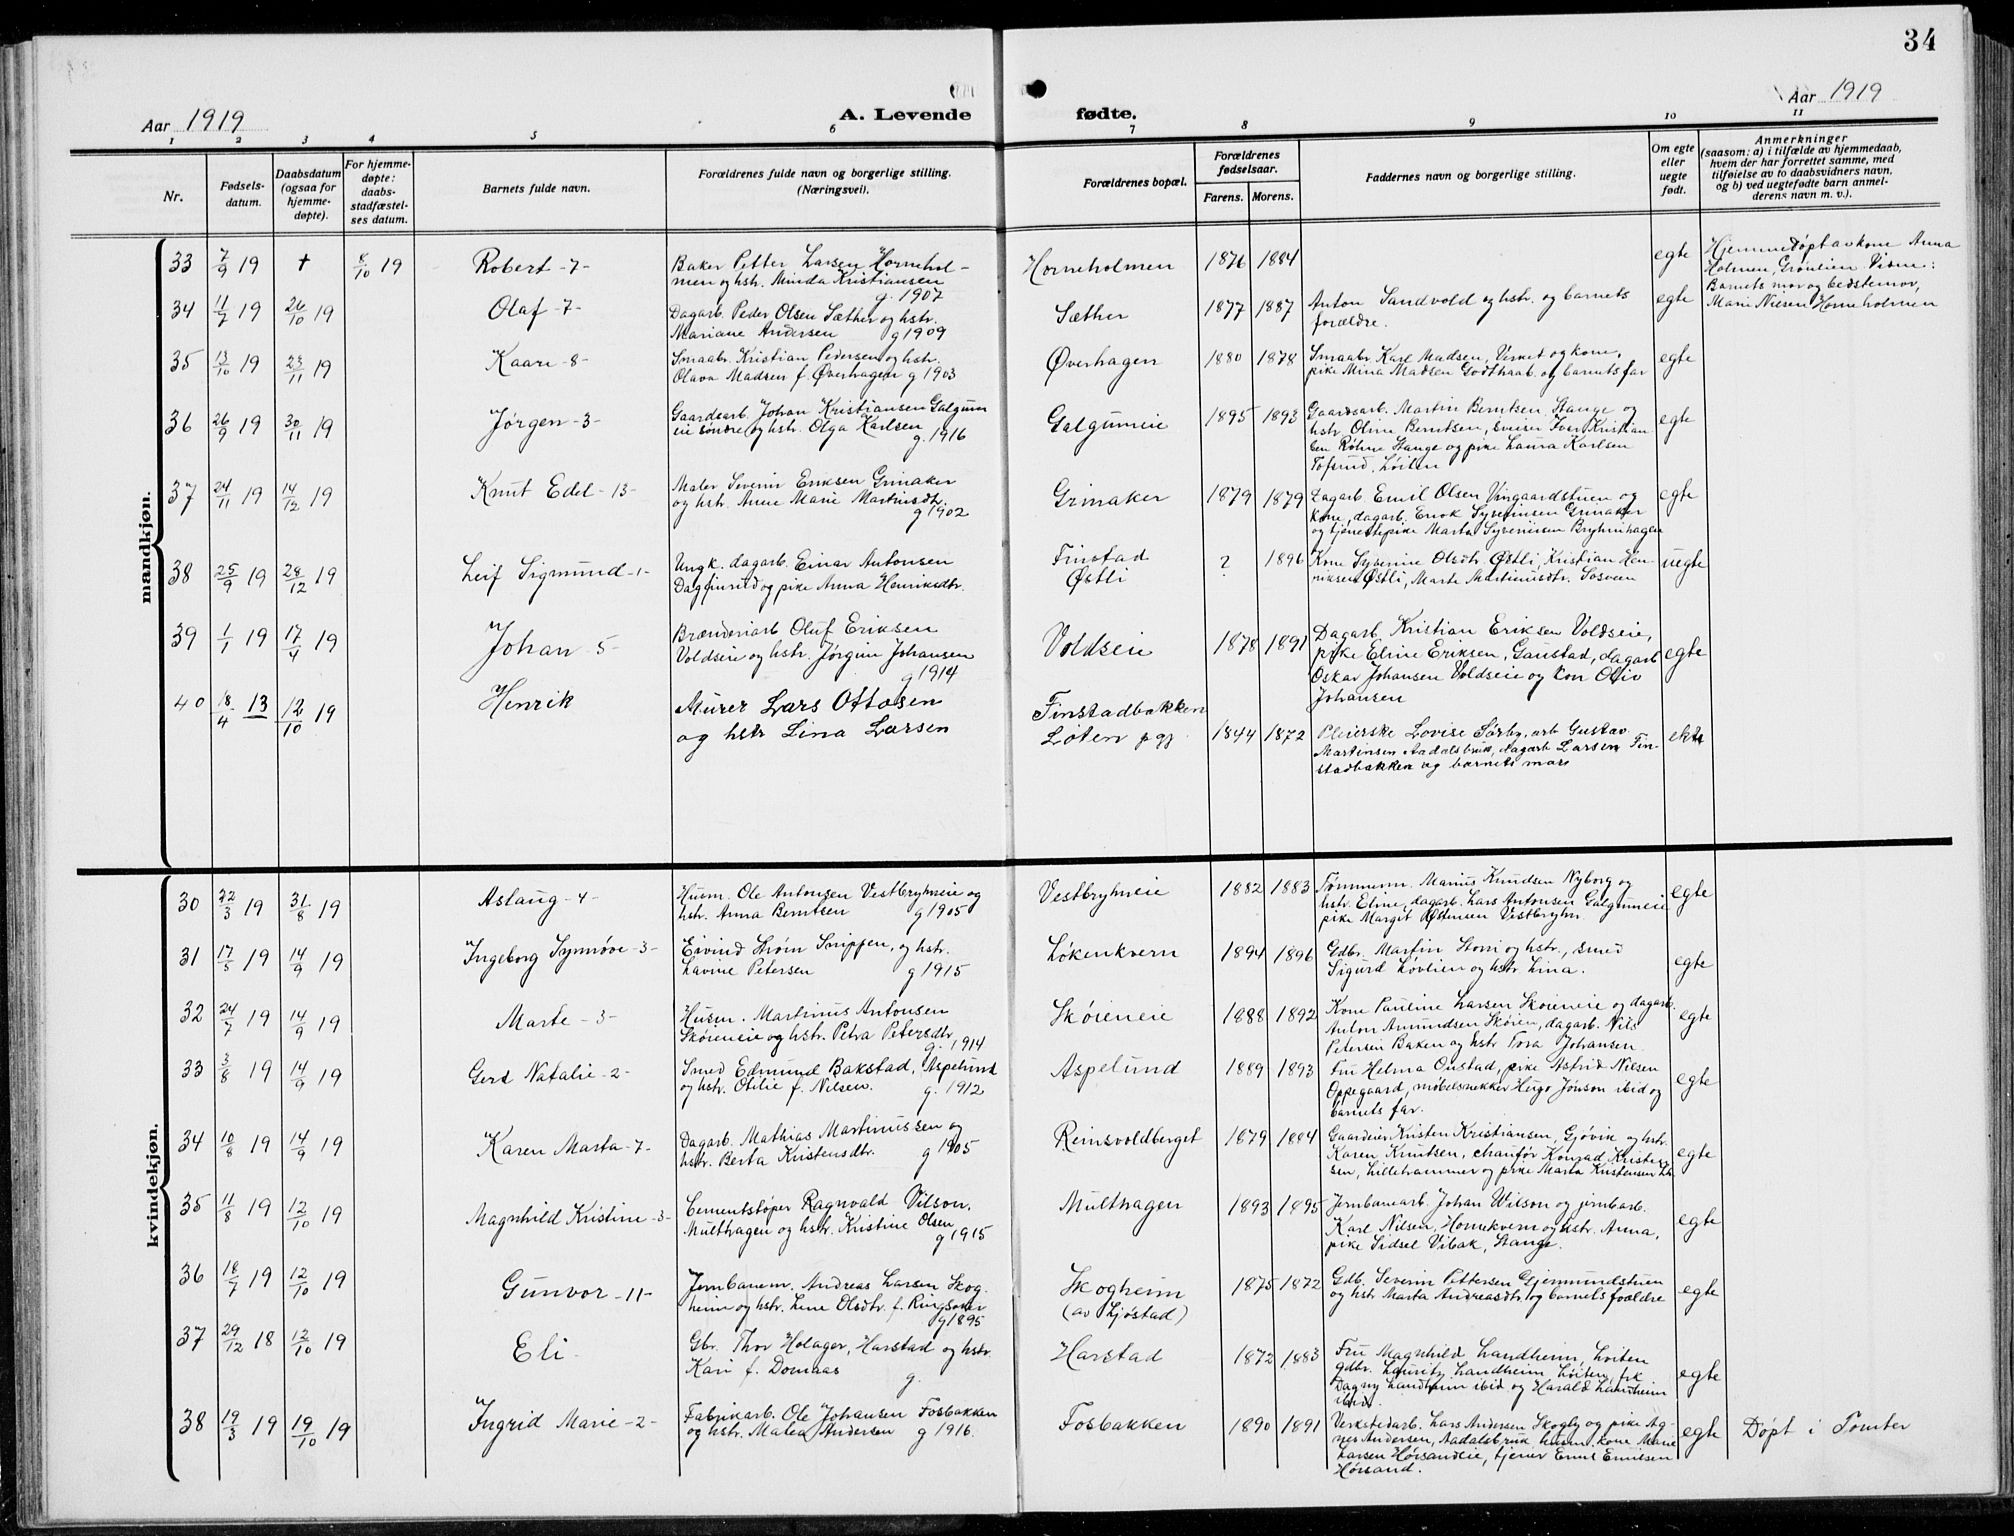 34
Aar 1919
A. Levende fødte.
Aar 1919
1 2 3 4 5 6 7 8 9 10 11
Nr.
Fødsels-
datum.
Daabsdatum
(ogsaa for
hjemme-
døpte).
For hjemme-
døpte:
daabs-
stadfæstel-
ses datum.
Barnets fulde navn.
Forældrenes fulde navn og borgerlige stilling.
(Næringsvei).
Forældrenes bopæl.
Forældrenes
fødselsaar.
Farens. Morens.
Faddernes navn og borgerlige stilling.
Om egte
eller
uegte
født.
Anmerkninger
(saasom: a) i tilfælde av hjemmedaab,
hvem der har forrettet samme, med
tilføielse av to daabsvidners navn,
og b) ved uegtefødte barn anmel-
derens navn m. v.).
mandkjøn.
33 7/9 19 + 8/10 19 Robert -7-
Baker Petter Larsen Hornehol-
men og hstr. Minda Kristiansen
g. 1907
Horneholmen 1876 1884 egte
Hjemmedøpt av kone Anna
Holmen, Grønlien. Vidne:
Barnets mor og bedstemor,
Marie Nilsen Horneholmen
34 11/7 19 26/10 19 Olaf -7-
Dagarb. Peder Olsen Sæther og hstr.
Mariane Andersen g 1909
Sæther 1877 1887
Anton Sandvold og hstr. og barnets
forældre.
egte
35 13/10 19 23/11 19 Kaare -8-
Smaabr. Kristian Pedersen og hstr.
Olava Madsen f. Øverhagen g 1903
Øverhagen 1880 1878
Smaabr Karl Madsen, Virket og kone,
pike Mina Madsen Godthaab og barnets far
egte
36 26/9 19 30/11 19 Jørgen -3-
Gaardsarb. Johan Kristiansen Galgum
eie søndre og hstr. Olga Karlsen
g. 1916
Galgumeie 1895 1893
Gaardsarb. Martin Berntsen, Stange og
hstr. Oline Berntsen, Iver Kristian
sen Røhne Stange og pike Laura Karlsen
Løiten
egte
37 24/11 19 14/12 19 Knut Edel -13-
Maler Severin Eriksen Grinaker
og hstr. Anne Marie Martinsdtr.
g 1902
Grinaker 1879 1879
Dagarb. Emil Olsen Vingaardstuen og
kone, dagarb. Enok Syverinsen Grinaker
og tjenestepike Marta Syverinsen Bryhnihagen
egte
38 25/9 19 28/12 19 Leif Sigmund -1-
Ungk. dagarb. Einar Antonsen
Dagfinrud og pike Anna Henriksdtr.
Finstad
Østli
? 1896
Kone Syverine Olsdtr. Østli, Kristian Hen-
riksen Østli, Marte Martinusdtr. Sosveen
uegte
39 1/1 19 17/4 19 Johan -5-
Brænderiarb Oluf Eriksen
Voldseie og hstr. Jørgine Johansen
g 1914
Voldseie 1878 1891
Dagarb. Kristian Eriksen Voldseie,
pike Eline Eriksen, Gaustad, dagarb
Oskar Johansen Voldseie og kon
Johansen
egte
40 18/4 13 12/10 19 Henrik
Murer Lars Ottosen
og hstr Lina Larsen
Finstadbakken
Løten pgj. 1844 1872
Pleierske Lovise Sørby, arb Gustav
Martinsen Aadalsbruk, dagarb Larsen Fin-
stadbakken og barnets mor
ekte
kvindekjøn.
30 22/3 19 31/8 19 Aslaug -4-
Husm. Ole Antonsen Vestbryhneie og
hstr. Anna Berntsen g 1905
Vestbryhneie 1882 1883
Tømmerm. Marius Knudsen Nyborg og
hstr. Eline, dagarb. Lars Antonsen Galgumeie
pike Margit Vestbryhn.
egte
31 17/5 19 14/9 19 Ingeborg Synnøve -3-
Eivind Strøm Snippen, og hstr.
Lavine Petersen g 1915
Løkenkvern 1894 1896
Gdbr. Martin og hstr., smed
Sigurd Lovlien og hstr Lina.
egte
32 24/7 19 14/9 19 Marte -3-
Husm. Martinus Antonsen
Skøieneie og hstr. Petra Petersdtr,
g. 1914
Skøieneie 1888 1892
Kone Pauline Larsen Skøieneie og dagarb.
Anton Amundsen Skøien, dagarb. Nils
Petersen Baken og hstr Tora Johansen
egte
33 3/8 19 14/9 19 Gerd Natalie -2-
Smed Edmund Bakstad, Aspelund
og hstr. Otilie f. Nilsen. g. 1912
Aspelund 1889 1893
Fru Helma Onstad, pike Astrid Nilsen
Oppegaard, møbelsnekker Hugo Jonson ibid og
barnets far.
egte
34 10/8 19 14/9 19 Karen Marta -7-
Dagarb. Mathias Martinussen og
hstr. Berta Kristensdtr. g 1905
Reinsvoldberget 1879 1884
Gaardeier Kristen Kristiansen, Gjøvik og hstr.
Karen Knutsen, chaufør Konrad Kristen
sen, Lillehammer og pike Marta Kristensen
egte
35 11/8 19 12/10 19 Magnhild Kristine -3-
Cementstøper Ragnvald Vilson,
Multhagen og hstr. Kristine Olsen
g 1915
Multhagen 1893 1895
Jernbanearb Johan Wilson og jernbarb.
Karl Nilsen, Hornekvern og hstr. Anna,
pike Sidsel Vibak, Stange.
egte
36 18/7 19 12/10 19 Gunvor -11-
Jernbanem. Andreas Larsen Skog-
heim og hstr. Line Olsdtr. f. Ringsaker
g 1895
Skogheim
(av Ljøstad)
1875 1872
Gdb. Severin Pettersen Gjermundstuen
og hstr Marta Andreasdtr. og barnets foældre
egte
37 29/12 18 12/10 19 Eli -
Gbr. Thor Holager, Harstad og hstr.
Kari f. Domaas
g.
Harstad 1872 1883
Fru Magnhild Landheim, Løiten
gdbr. Lauritz Landheim Løiten, frk
Dagny Landheim ibid og Harald Landheim
ibid.
egte
38 19/3 19 19/10 19 Ingrid Marie -2-
Fabrikarb. Ole Johansen Fosbakken
og hstr. Malea Andersen g 1916.
Fosbakken 1890 1891
Verkstedarb. Lars Andersen Skogly og pike Ag-
nes Andersen, Aadalsbruk, husm. kone Marie
Larsen Hørsandeie, tjener Emil Emilsen
Hørsand.
egte Døpt i Tomter